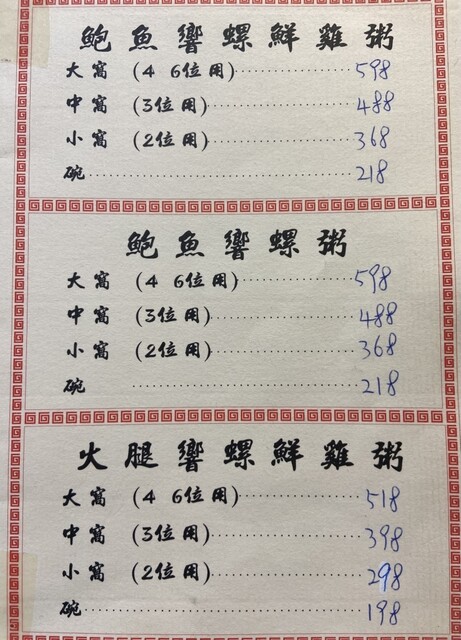 鮑魚響螺鮮雞粥
大窩 (4 6位用) 598
中窩 (3位用) 488
小窩 (2位用) 368
碗 218
鮑魚響螺粥
大窩 (4 6位用) 598
中窩 (3位用) 488
小窩 (2位用) 368
碗 218
火腿響螺鮮雞粥
大窩 (4 6位用) 518
中窩 (3位用) 398
小窩 (2位用) 298
碗 198